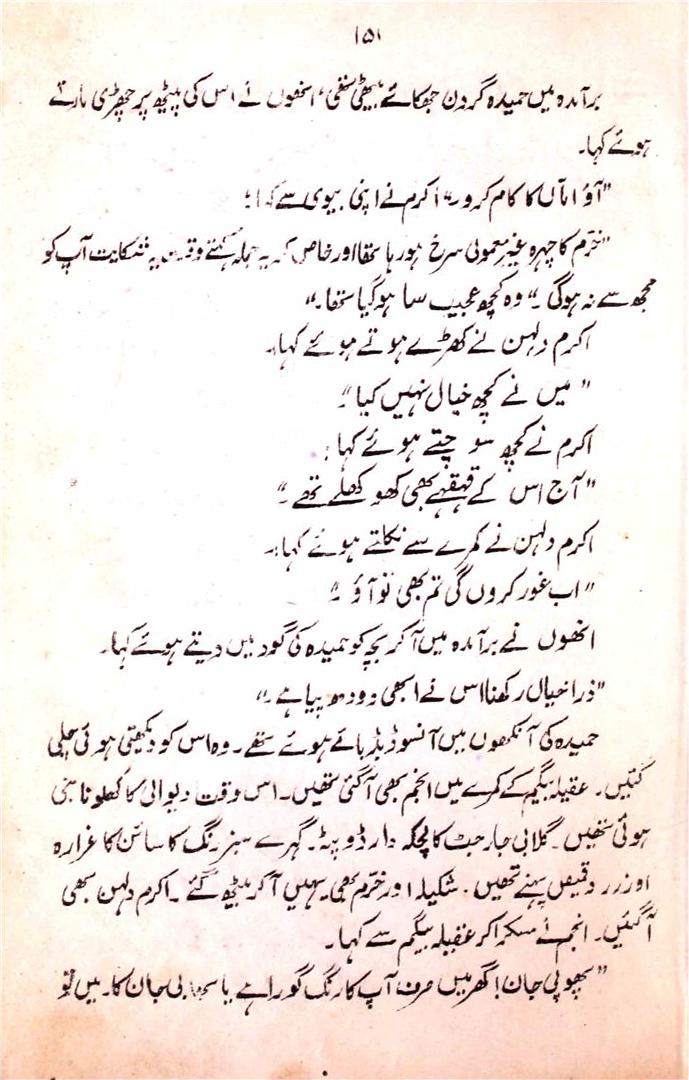 ۱۵۱
برآمدہ میں حمیدہ گردن جھکائے بیٹھی تھی، انھوں نے اس کی پیٹھ پر چھڑی مارتے
ہوئے کہا۔
"آؤ اماں کا کام کرو۔" اکرم نے اپنی بیوی سے کہا؛
"خرّم کا چہرہ غیر معمولی سرخ ہو رہا تھا اور خاص کر یہ جملہ کہتے وقت یہ شکایت آپ کو
مجھ سے نہ ہوگی۔" وہ کچھ عجیب سا ہوگیا تھا۔"
اکرم دلہن نے کھڑے ہوتے ہوئے کہا۔
"میں نے کچھ خیال نہیں کیا"۔
اکرم نے کچھ سوچتے ہوئے کہا:
"آج اس کے قہقہے بھی کھوکھلے تھے۔"
اکرم دلہن نے کمرے سے نکلتے ہوئے کہا:۔
"اب غور کروں گی تم بھی تو آؤ۔"
انھوں نے برآمدہ میں آکر بچہ کو حمیدہ کی گود میں دیتے ہوئے کہا۔
"ذرا خیال رکھنا اس نے ابھی دودھ پیا ہے۔"
حمیدہ کی آنکھوں میں آنسو ڈبڈبائے ہوئے تھے۔ وہ اس کو دیکھتی ہوئی چلی
گئیں۔ عقیلہ بیگم کے کمرے میں انجم بھی آگئی تھیں۔ اس وقت دیوالی کا کھلونا بنی
ہوئی تھیں۔ گلابی جارجٹ کا لچکہ دار ڈوپٹہ۔ گہرے سبز رنگ کا ساٹن کا غرارہ
اور زرد قمیص پہنے تھیں۔ شکیلہ اور خرّم بھی یہیں آکر بیٹھ گئے۔ اکرم دلہن بھی
آگئیں۔ انجم نے مسکرا کر عقیلہ بیگم سے کہا۔
"پھوپی جان! گھر میں صرف آپ کا رنگ گورا ہے یا بھابی جان کا۔ میں تو